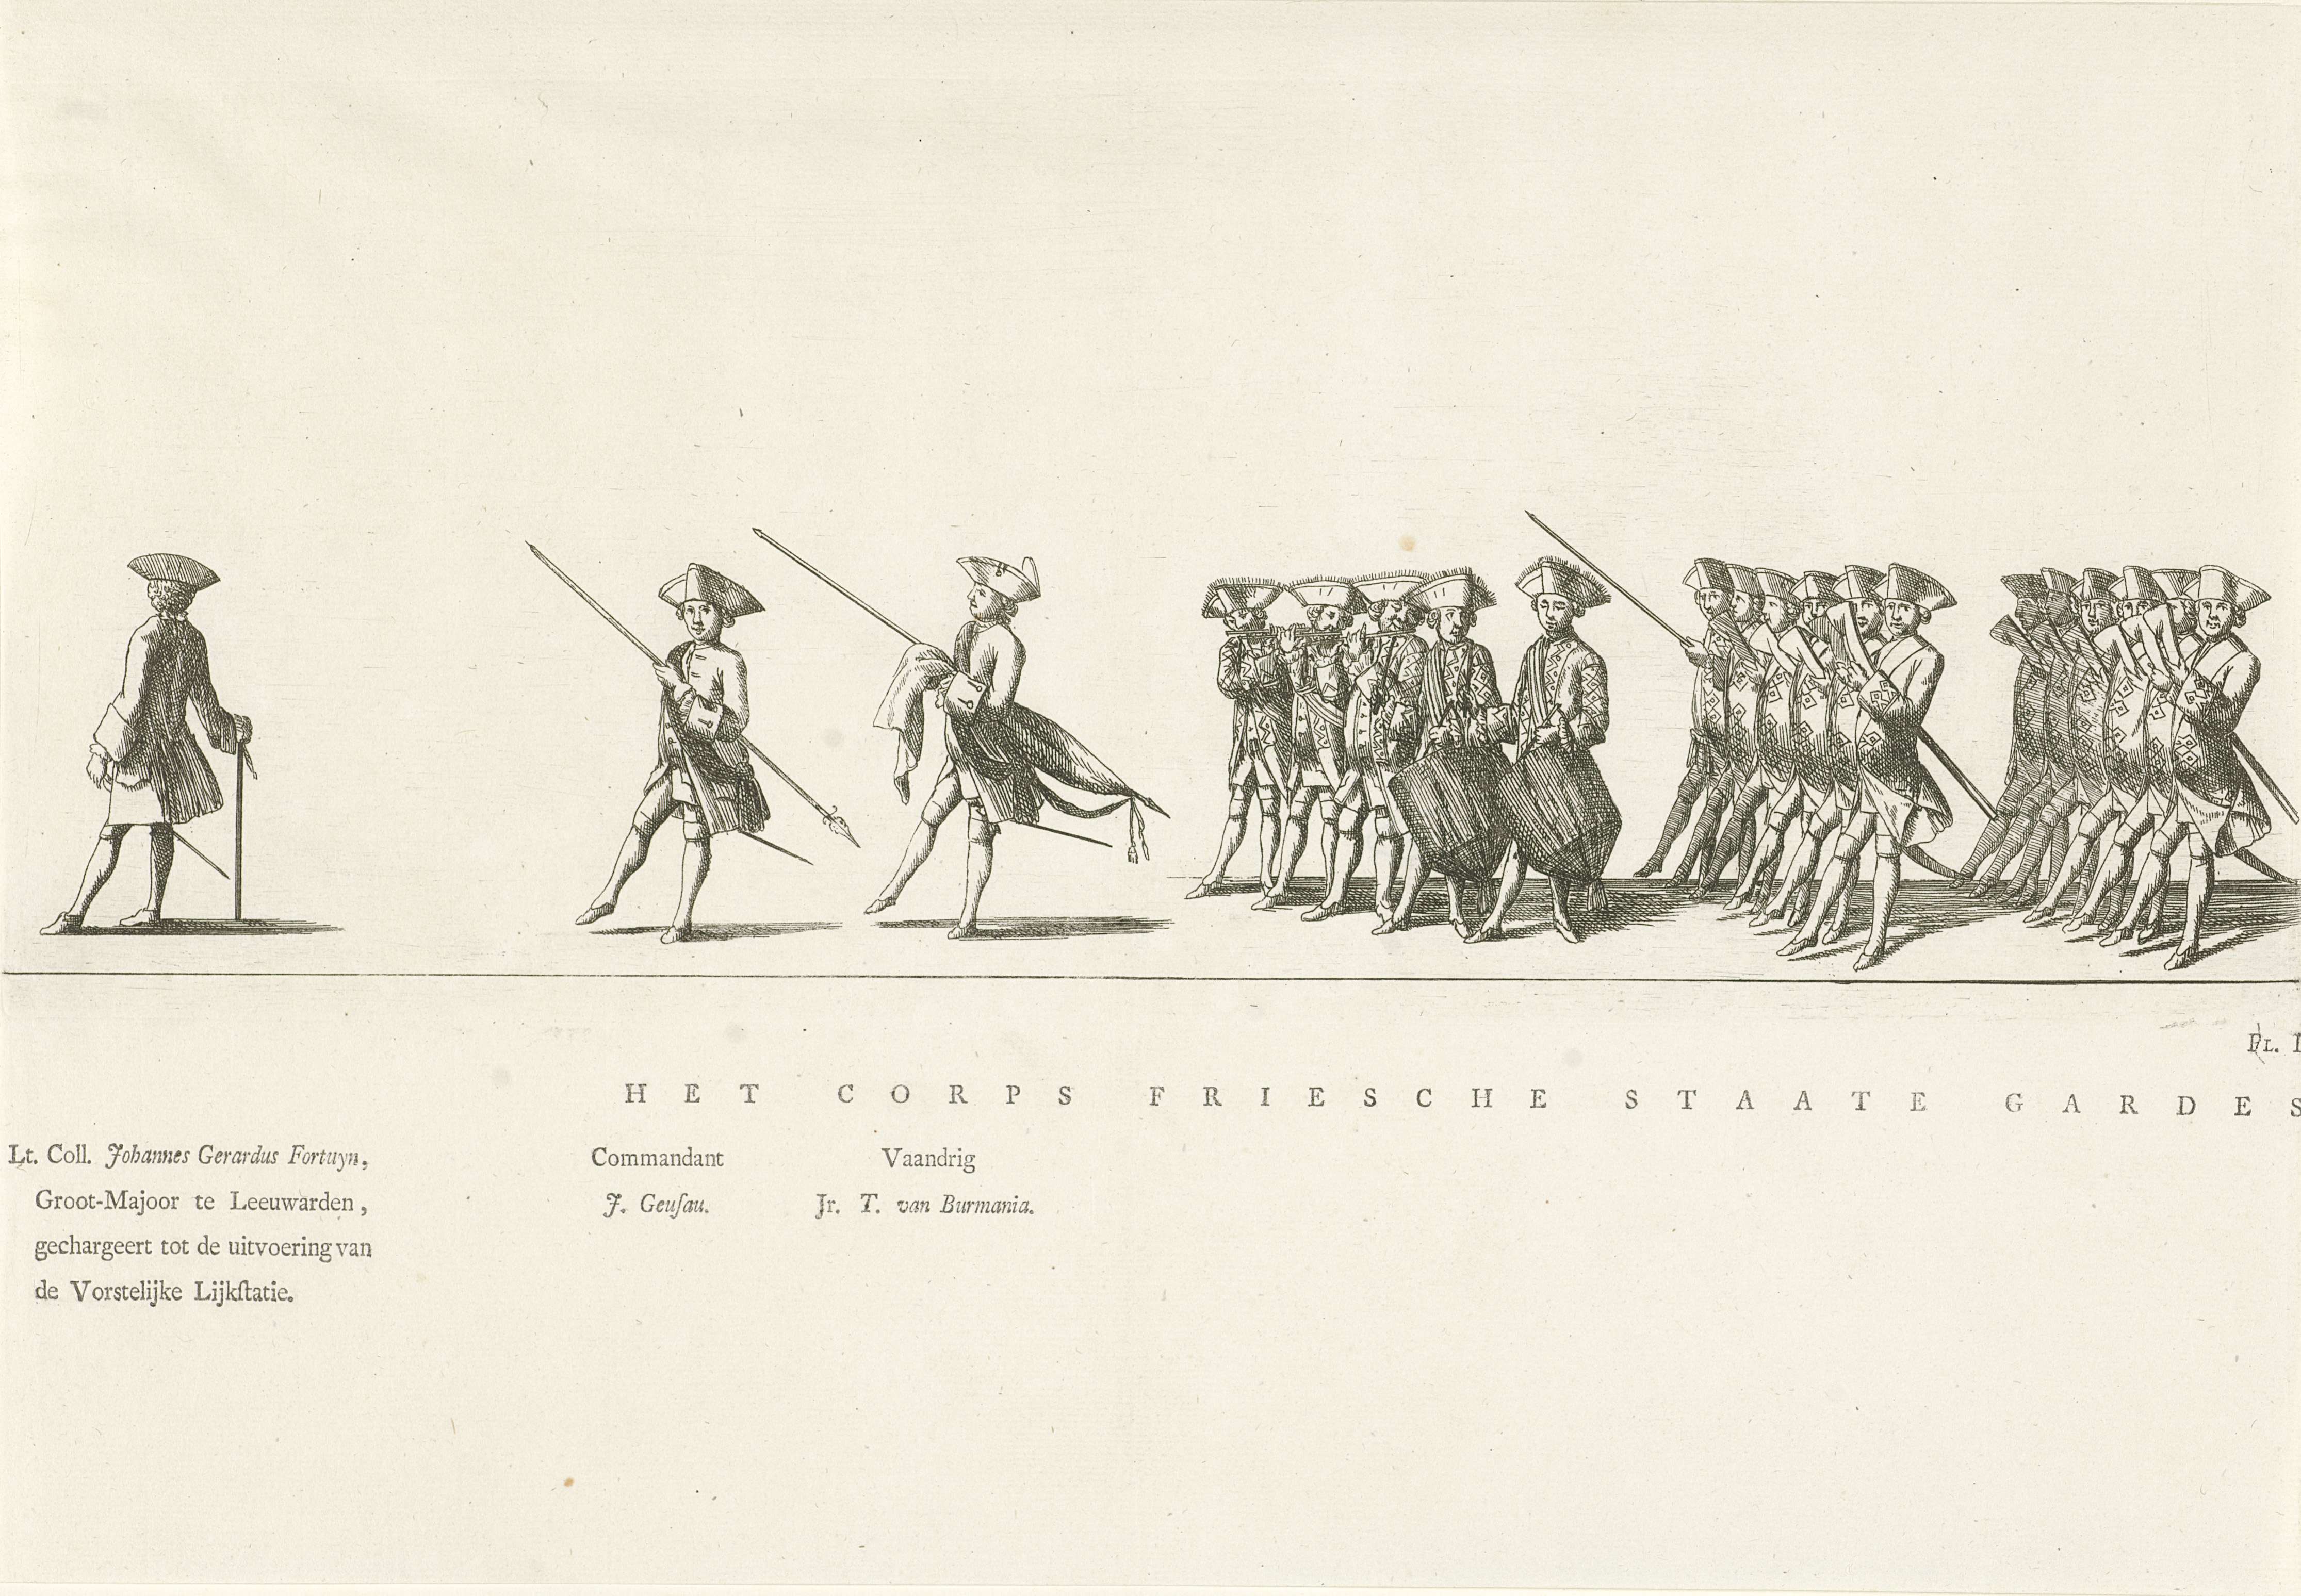 PL. I
HET CORPS FRIESCHE STAATE GARDES
Lt. Coll. Johannes Gerardus Fortuyn,
Groot-Majoor te Leeuwarden,
gechargeert tot de uitvoering van
de Vorstelijke Lijkſtatie.
Commandant
J. Geuſau.
Vaandrig
Jr. T. van Burmania.